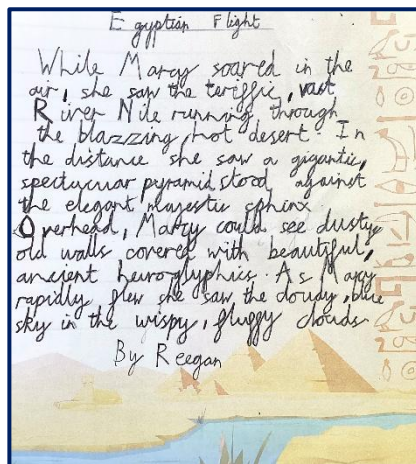 Egyptian Flight
While Marcy soared in the
air, she saw the teriffic, vast
River Nile running through
the blazzing hot desert. In
the distance she saw a gigantic,
spectucuar pyramid stood against
the elegant, majestic sphinx.
Overhead, Marcy could see dusty
old walls covered with beautiful,
ancient heiroglyphics. As Marcy
rapidly flew she saw the cloudy, blue
sky in the wispy, fluggy clouds
By Reegan